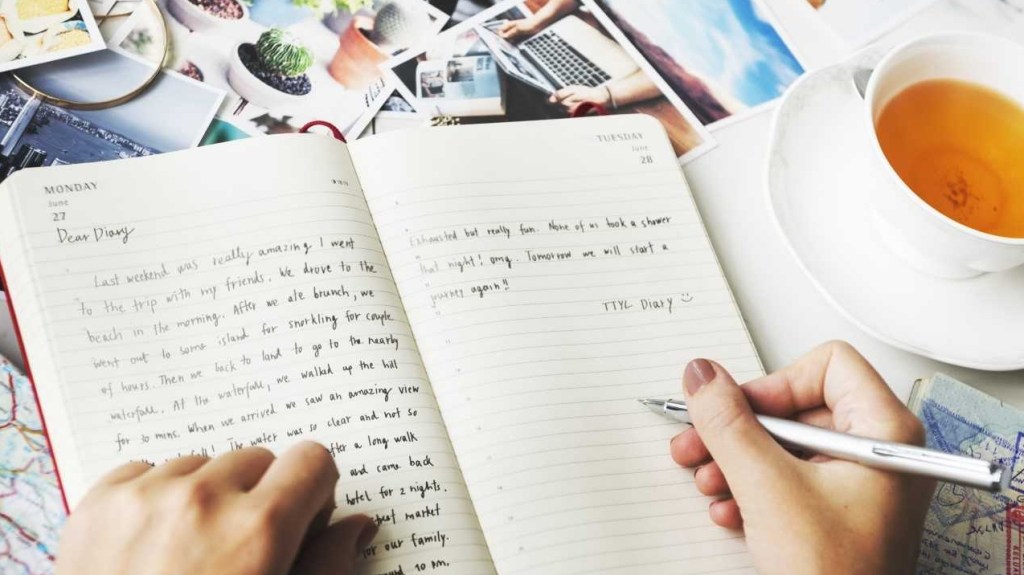 MONDAY
June
27
Dear Diary
Last weekend was really amazing I went
to the trip with my friends. We drove to the
beach in the morning. After we ate brunch, we
went out to some island for snorkling for couple
of hours. Then we back to land to go to the nearby
waterfall. At the waterfall, we walked up the hill
for 30 mins. When we arrived we saw an amazing view
The water was so clear and not so
after a long walk
and came back
hotel for 2 nights.
market
for our family.
10 pm.
TUESDAY
June
28
Exhausted but really fun. None of us took a shower
that night! omg. Tomorrow we will start a
journey again!!
TTYL Diary ☺